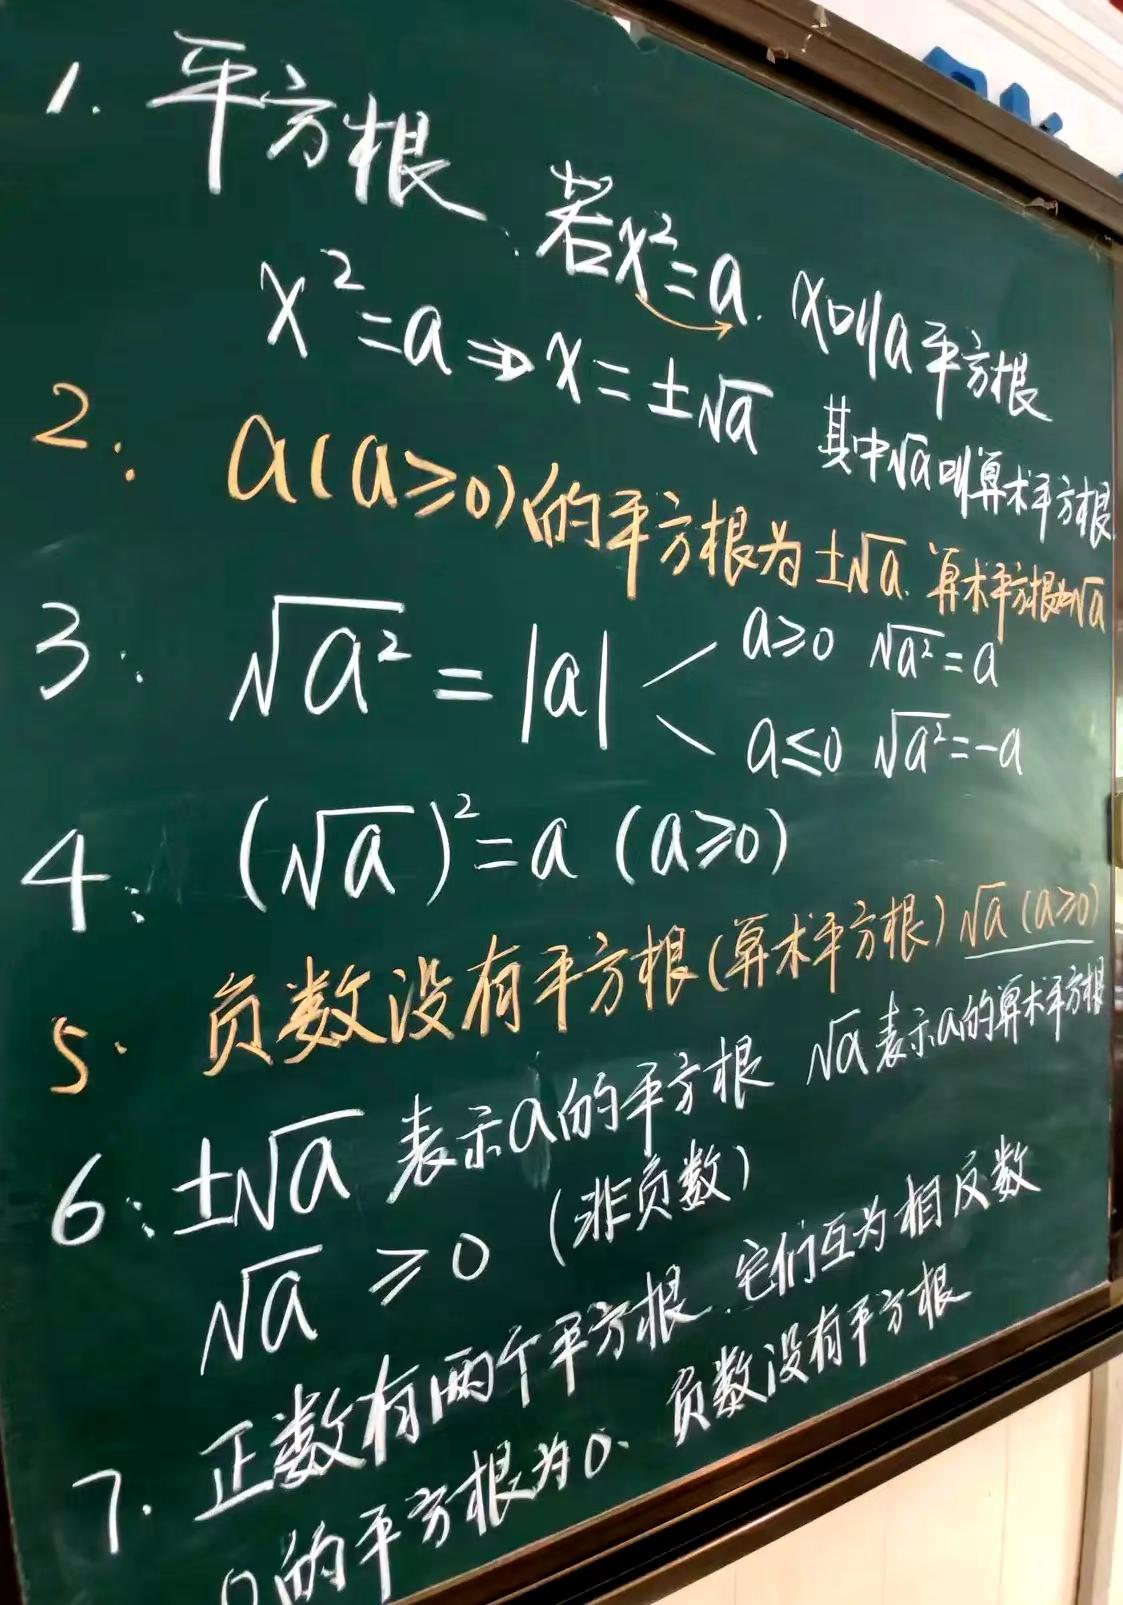 1. 平方根 若x²=a. x叫a平方根
x²=a⇒x=±√a 其中√a叫算术平方根
2: a(a≥0)的平方根为±√a. 算术平方根为√a
3: √a²=|a| < a≥0 √a²=a
a≤0 √a²=-a
4: (√a)²=a (a≥0)
5. 负数没有平方根(算术平方根) √a (a≥0)
6: ±√a 表示a的平方根 √a表示a的算术平方根
√a ≥0 (非负数)
7. 正数有两个平方根. 它们互为相反数
0的平方根为0. 负数没有平方根